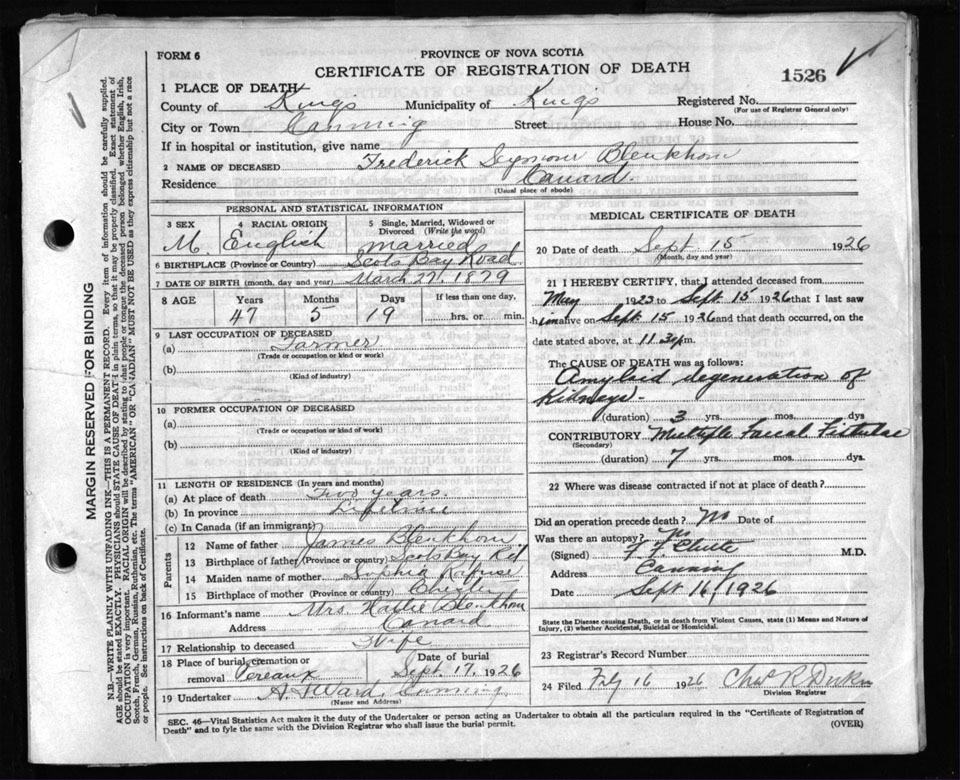 FORM 6
PROVINCE OF NOVA SCOTIA
CERTIFICATE OF REGISTRATION OF DEATH
1526
1 PLACE OF DEATH
County of Kings Municipality of Kings Registered No.
(For use of Registrar General only)
City or Town Canning Street House No.
If in hospital or institution, give name
2 NAME OF DECEASED Frederick Seymour Blenkhorn
Residence Canard.
(Usual place of abode)
PERSONAL AND STATISTICAL INFORMATION
3 SEX 4 RACIAL ORIGIN 5 Single, Married, Widowed or Divorced (Write the word)
M. English married
6 BIRTHPLACE (Province or Country) Scots Bay Road
7 DATE OF BIRTH (month, day and year) March 27. 1879
8 AGE Years Months Days If less than one day,
47 5 19 hrs. or min.
9 LAST OCCUPATION OF DECEASED
(a) Farmer
(Trade or occupation or kind or work)
(b)
(Kind of industry)
10 FORMER OCCUPATION OF DECEASED
(a)
(Trade or occupation or kind of work)
(b)
(Kind of industry)
11 LENGTH OF RESIDENCE (In years and months)
(a) At place of death Two years.
(b) In province Lifetime
(c) In Canada (if an immigrant)
Parents
12 Name of father James Blenkhorn
13 Birthplace of father (Province or country) Scots Bay Rd
14 Maiden name of mother Sophia Rafuse
15 Birthplace of mother (Province or Country) Chester
16 Informant's name Mrs. Hattie Blenkhorn
Address Canard
17 Relationship to deceased Wife
18 Place of burial, cremation or removal Pereaux Date of burial Sept. 17, 1926
19 Undertaker Ward, Canning
(Name and Address)
MEDICAL CERTIFICATE OF DEATH
20 Date of death Sept 15 1926
(Month, day and year)
21 I HEREBY CERTIFY, that I attended deceased from
May 1923 to Sept. 15 1926 that I last saw
him alive on Sept. 15 1926 and that death occurred, on the
date stated above, at 11.30 p m.
The CAUSE OF DEATH was as follows:
Amyloid degeneration of
kidneys.
(duration) 3 yrs. mos. dys
CONTRIBUTORY Multiple Faecal Fistulae
(Secondary)
(duration) 7 yrs. mos. dys.
22 Where was disease contracted if not at place of death?
Did an operation precede death? No Date of
Was there an autopsy? No
(Signed) F. F. Chute M.D.
Address Canning
Date Sept 16/1926
State the Disease causing Death, or in death from Violent Causes, state (1) Means and Nature of
Injury, (2) whether Accidental, Suicidal or Homicidal.
23 Registrar's Record Number
24 Filed 16 1926 Chas R
Division Registrar
SEC. 46—Vital Statistics Act makes it the duty of the Undertaker or person acting as Undertaker to obtain all the particulars required in the "Certificate of Registration of
Death" and to fyle the same with the Division Registrar who shall issue the burial permit.
(OVER)
MARGIN RESERVED FOR BINDING
N.B.—WRITE PLAINLY WITH UNFADING INK—THIS IS A PERMANENT RECORD. Every item of information should be carefully supplied.
AGE should be stated EXACTLY. PHYSICIANS should STATE CAUSE OF DEATH in plain terms, so that it may be properly classified. Exact statement of
OCCUPATION is very important. RACIAL ORIGIN will be described by stating to what people or tongue the deceased person belonged whether English, Irish,
Scotch, French, German, Russian, Ruthenian, etc. The terms "AMERICAN" OR "CANADIAN" MUST NOT BE USED as they express citizenship but not a race
or people. See instructions on back of Certificate.